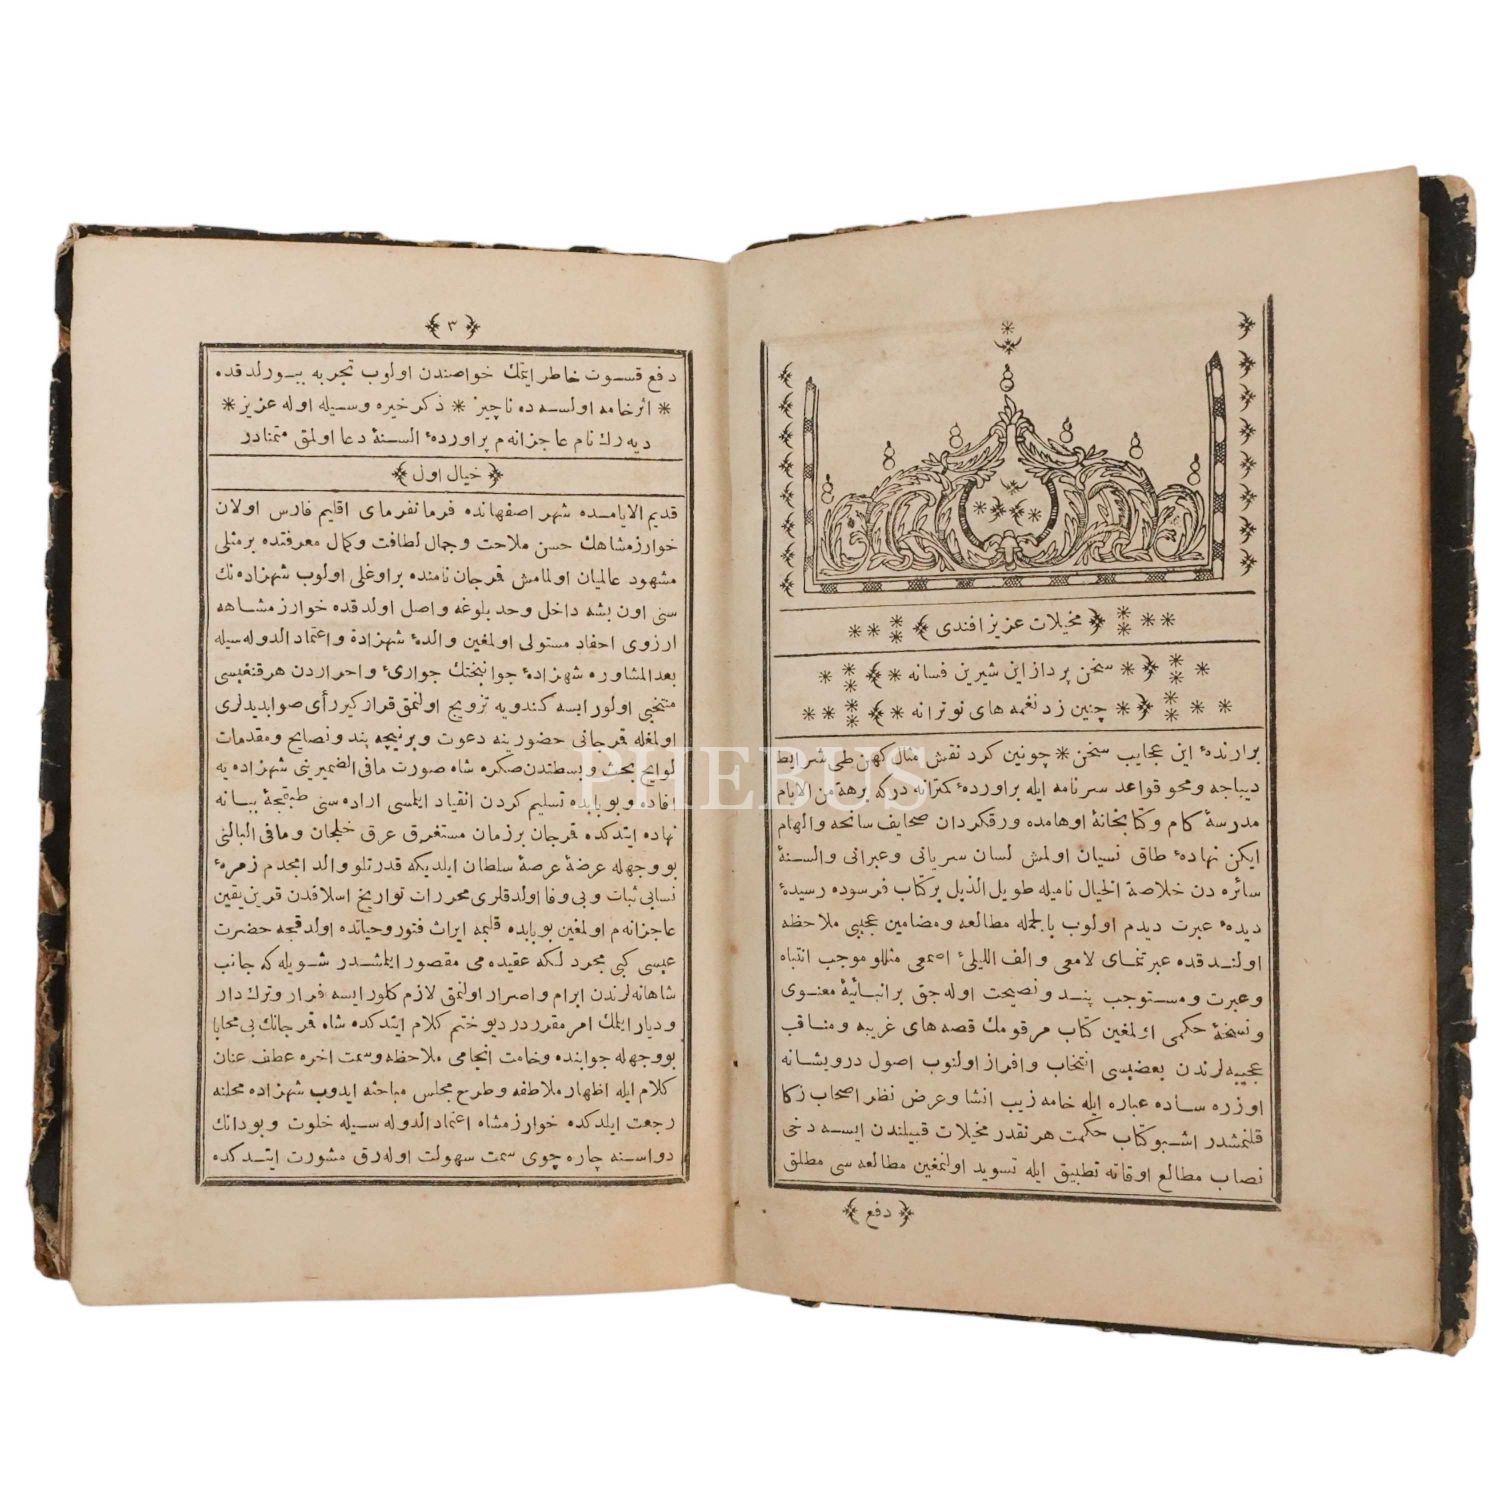 مخیلات عزیز افندی
سخن پرداز این شیرین فسانه
چنین زد نغمه های نو ترانه
برارندهٔ این عجایب سخن * چونین کرد نقش مثال کهن طی شرایط
دیباجه و محو قواعد سرنامه ایله براوردهٔ کمترانه درکه برهة من الایام
مدرسهٔ کام و کتابخانهٔ اوهامده ورقکردان صحایف سانحه والهام
ایکن نهادهٔ طاق نسیان اولمش لسان سریانی وعبرانی والسنهٔ
سائره دن خلاصة الخیال نامیله طویل الذیل برکتاب فرسوده رسیدهٔ
دیدهٔ عبرت دیدم اولوب بالجمله مطالعه ومضامین عجیبی ملاحظه
اولندقده عبرتنمای لامعی والف اللیلیٔ اصمعی مثللو موجب انتباه
وعبرت ومستوجب پند ونصیحت اوله جق برانبائیهٔ معنوی
ونسخهٔ حکمی اولمغین کتاب مرقومك قصه های غریبه ومناقب
عجیبه لرندن بعضیسی انتخاب وافراز اولنوب اصول درویشانه
اوزره ساده عباره ایله خامه زیب انشا وعرض نظر اصحاب زکا
قلنمشدر اشبو کتاب حکمت هر نقدر مخیلات قبیلندن ایسه دخی
نصاب مطالع اوقاته تطبیق ایله تسوید اولنمغین مطالعه سی مطلق
دفع
٣
دفع قسوت خاطر ایتمك خواصندن اولوب تجربه بیورلدقده
* اثر خامه اولسه ده ناچیز * ذکر خیره وسیله اوله عزیز *
دیه رك نام عاجزانه م براوردهٔ السنهٔ دعا اولمق متمنادر
خیال اول
قدیم الایامده شهر اصفهانده فرمانفرمای اقلیم فارس اولان
خوارزمشاهك حسن ملاحت وجمال لطافت وکمال معرفتده برمثلی
مشهود عالمیان اولمامش قرجان نامنده براوغلی اولوب شهزاده نك
سنی اون بشه داخل وحد بلوغه واصل اولدقده خوارزمشاهه
ارزوی احفاد مستولی اولمغین والدهٔ شهزاده واعتماد الدوله سیله
بعد المشاوره شهزادهٔ جوانبختك جواریٔ واحراردن هرقنغیسی
منتخبی اولور ایسه کندویه تزویج اولنمق قرارکیر رأی صوابدیدلری
اولمغله قرجانی حضورینه دعوت وبرنیچه پند ونصایح ومقدمات
لوایح بحث وبسطندن صکره شاه صورت مافی الضمیرینی شهزاده یه
افاده وبوبابده تسلیم کردن انقیاد ایلمسی اراده سنی طبقچهٔ بیانه
نهاده ایتدکده قرجان برزمان مستغرق عرق خلجان ومافی البالنی
بووجهله عرضهٔ عرصهٔ سلطان ایلدیکه قدرتلو والد امجدم زمرهٔ
نسابی ثبات وبی وفا اولدقلری محررات تواریخ اسلافدن قرین یقین
عاجزانه م اولمغین بوبابده قلبمه ایراث فتور وحیاتده اولدقجه حضرت
عیسی کبی مجرد لکه عقیده می مقصور ایلمشدر شویله که جانب
شاهانه لرندن ابرام واصرار اولنمق لازم کلور ایسه فرار وترك دار
ودیار ایلمك امر مقرردر دیو ختم کلام ایتدکده شاه قرجانك بی محابا
بووجهله جوابنده وخامت انجامی ملاحظه وسمت اخره عطف عنان
کلام ایله اظهار ملاطفه وطرح مجلس مباحثه ایدوب شهزاده محلنه
رجعت ایلدکده خوارزمشاه اعتماد الدوله سیله خلوت وبودانك
دواسنه چاره جوی سمت سهولت اوله رق مشورت ایتدکده